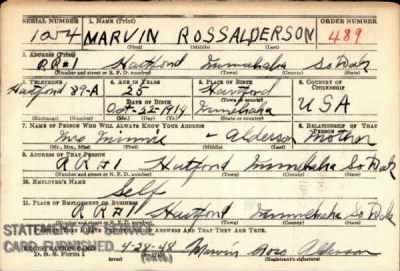 SERIAL NUMBER 1. NAME (Print) ORDER NUMBER
1024 MARVIN ROSS ALDERSON 489
(First) (Middle) (Last)
2. ADDRESS (Print)
R R #1 Hartford Minnehaha So Dak
(Number and street or R. F. D. number) (Town) (County) (State)
3. TELEPHONE 4. AGE IN YEARS 5. PLACE OF BIRTH 6. COUNTRY OF CITIZENSHIP
Hartford 89-A 25 Hartford
DATE OF BIRTH (Town or county)
Minnehaha U S A
(Mo.) (Day) (Yr.) (State or country)
7. NAME OF PERSON WHO WILL ALWAYS KNOW YOUR ADDRESS 8. RELATIONSHIP OF THAT PERSON
Mrs Minnie - Alderson Mother
(Mr., Mrs., Miss) (First) (Middle) (Last)
9. ADDRESS OF THAT PERSON
R R #1 Hartford Minnehaha So Dak
(Number and street or R. F. D. number) (Town) (County) (State)
10. EMPLOYER'S NAME
Self
11. PLACE OF EMPLOYMENT OR BUSINESS
R R #1 Hartford Minnehaha So Dak
(Number and street or R. F. D. number) (Town) (County) (State)
STATEMENT OF SERVICE
ANSWERS AND THAT THEY ARE TRUE.
CARD FURNISHED
REGISTRATION CARD 4-28-48 Marvin Ross Alderson
D. S. S. Form 1 (Date) (Registrant's signature)